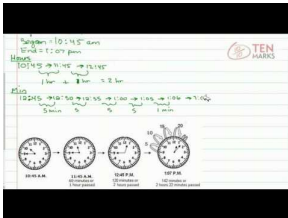 Began = 10:45 am
End = 1:07 pm
Hours
10:45 → 11:45 → 12:45
1 hr + 1 hr = 2 hr
Min
12:45 → 12:50 → 12:55 → 1:00 → 1:05 → 1:06 → 1:07
5 min 5 5 5 1 min
TEN
MARKS
10:45 A.M.
11:45 A.M.
60 minutes or
1 hour passed
12:45 P.M.
120 minutes or
2 hours passed
1:07 P.M.
142 minutes or
2 hours 22 minutes passed
5 10 15 20